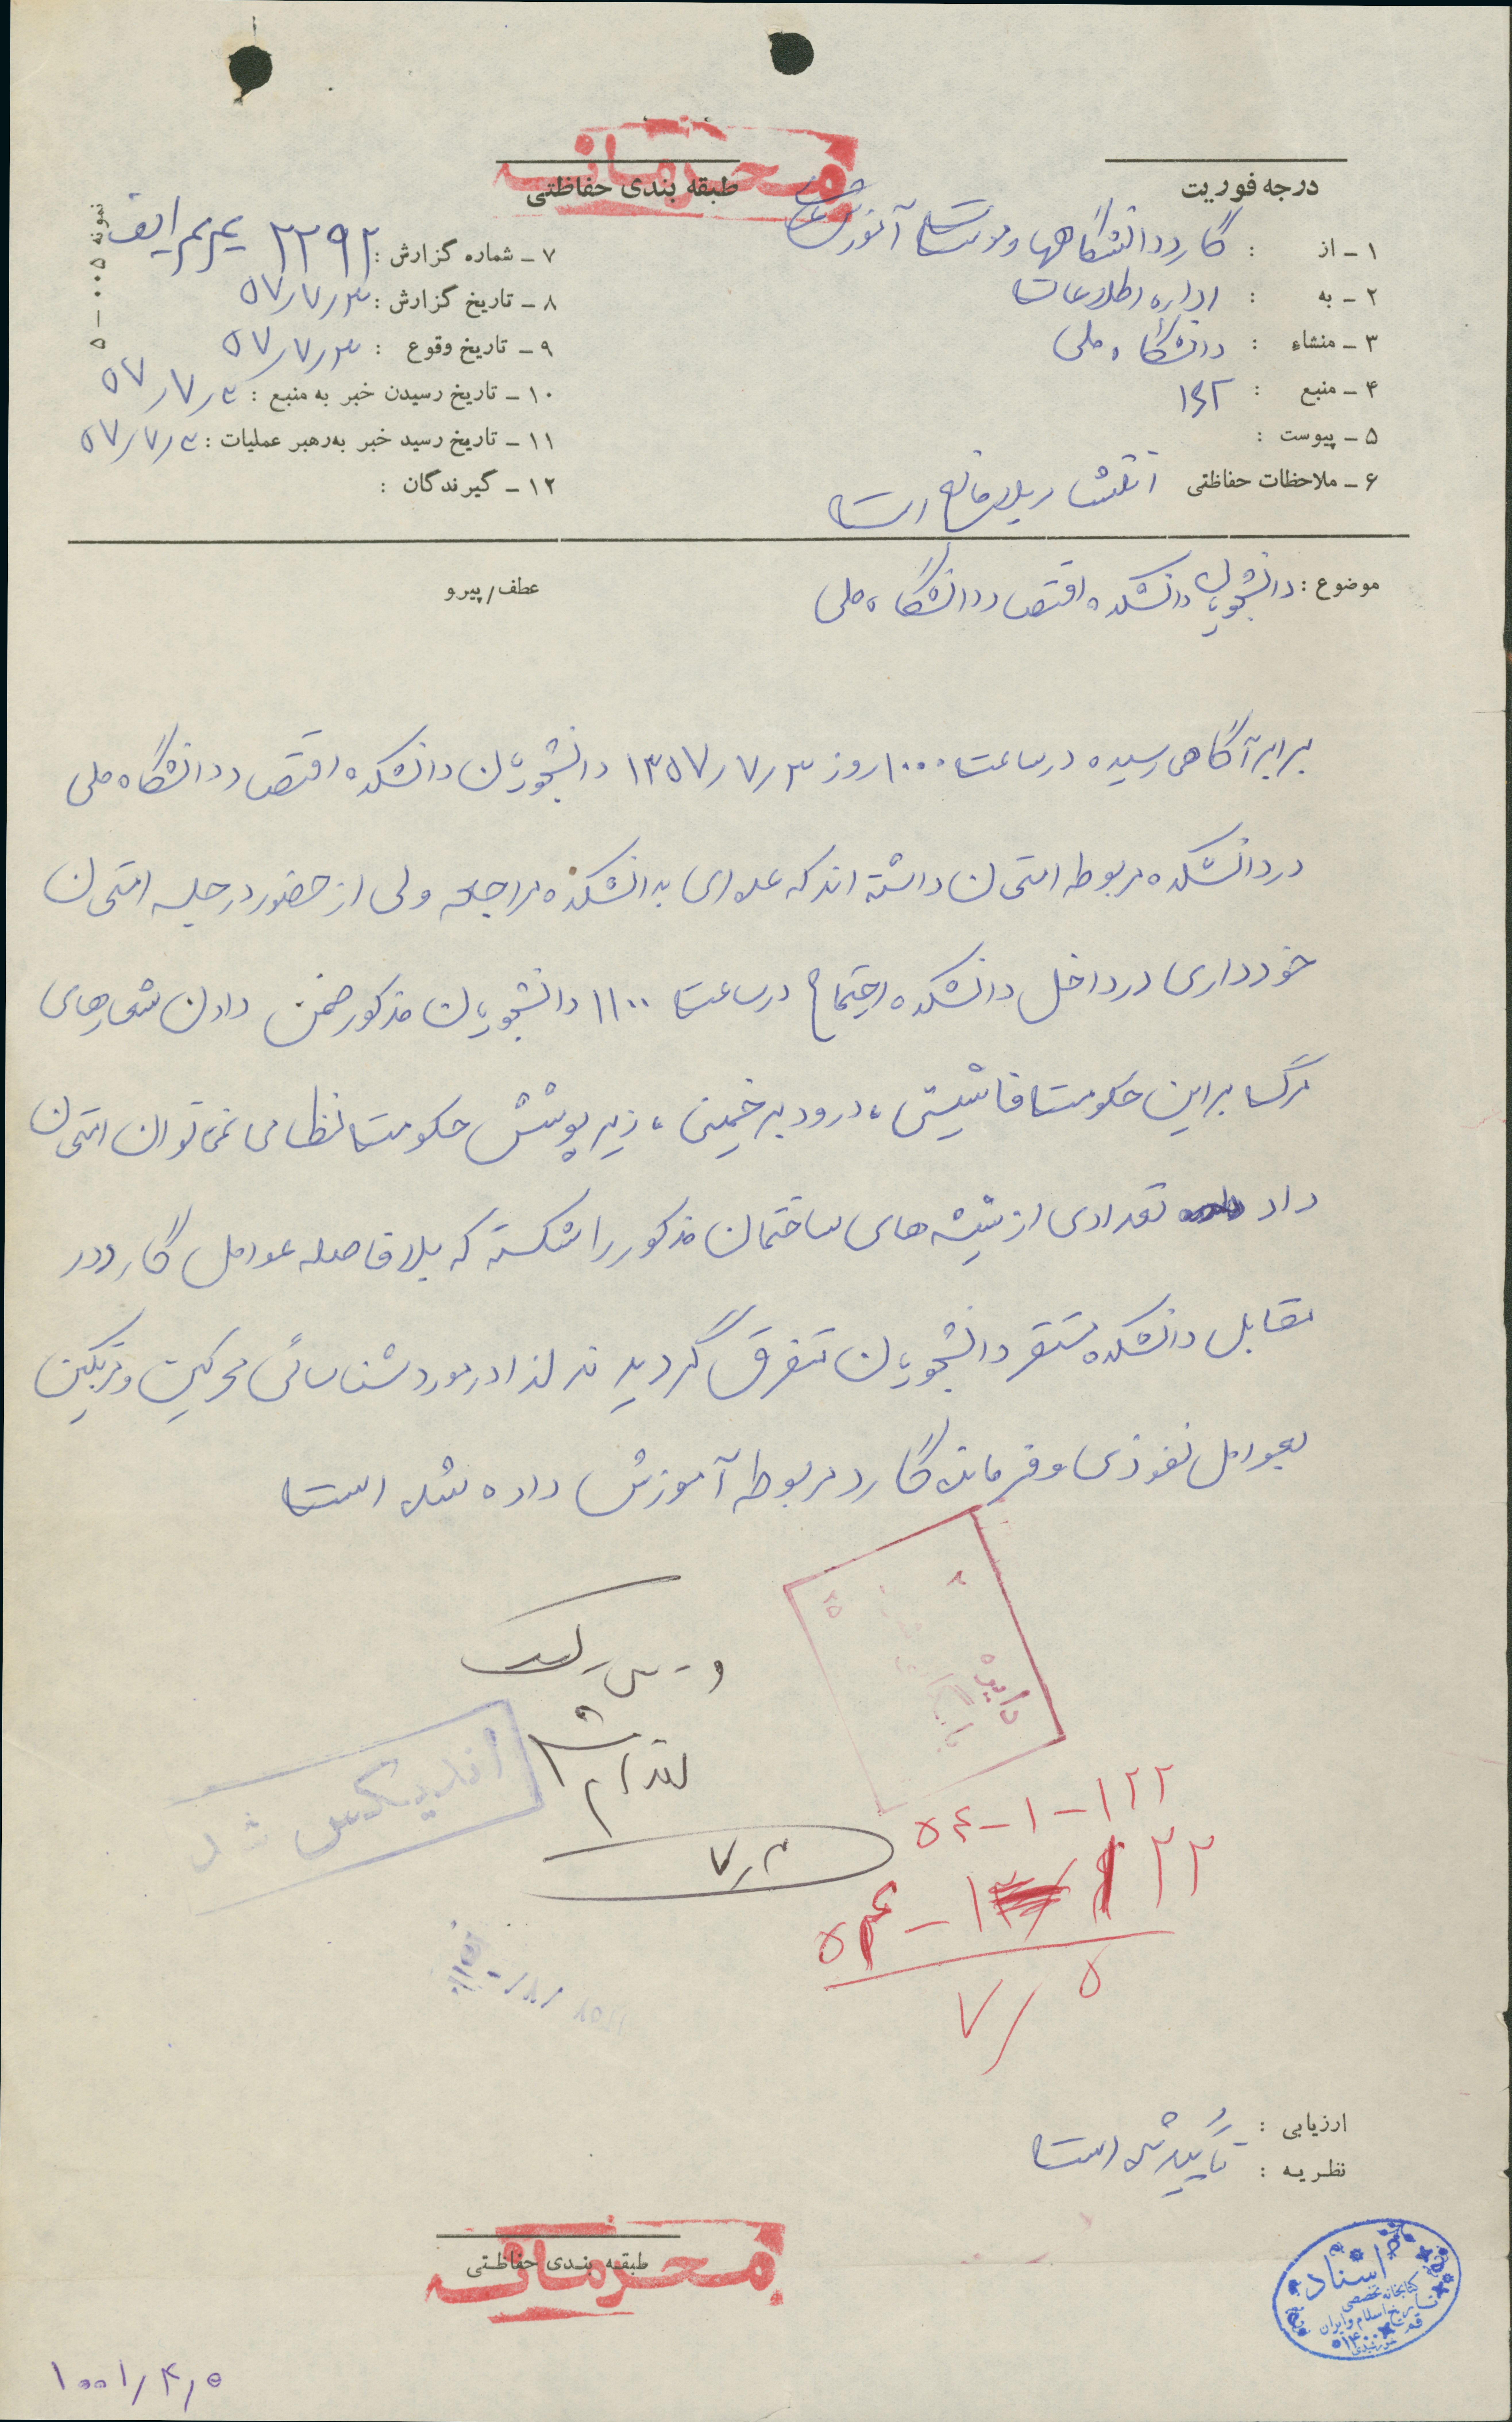 محرمانه
درجه فوریت
طبقه بندی حفاظتی
نمونه ۰۰۵-۵
۱ - از : گارد دانشگاهها و موسسات آموزش عالی
۲ - به : اداره اطلاعات
۳ - منشاء : دانشگاه ملی
۴ - منبع :
۵ - پیوست :
۶ - ملاحظات حفاظتی بلامانع است
۷ - شماره گزارش : ۲۲۹۲
۸ - تاریخ گزارش : ۵۷/۷/۳
۹ - تاریخ وقوع : ۵۷/۷/۳
۱۰ - تاریخ رسیدن خبر به منبع : ۵۷/۷/۳
۱۱ - تاریخ رسید خبر به‌رهبر عملیات : ۵۷/۷/۳
۱۲ - گیرندگان :
موضوع : دانشجویان دانشکده اقتصاد دانشگاه ملی
عطف/پیرو
برابر آگاهی رسیده در ساعت ۱۰۰۰ روز ۱۳۵۷/۷/۳ دانشجویان دانشکده اقتصاد دانشگاه ملی
در دانشکده مربوطه امتحان داشته اند که عده ای بدانشکده مراجعه ولی از حضور در جلسه امتحان
خودداری در داخل دانشکده اجتماع در ساعت ۱۱۰۰ دانشجویان مذکور ضمن دادن شعارهای
مرگ بر این حکومت فاشیستی ، درود بر خمینی ، زیر پوشش حکومت نظامی نمیتوان امتحان
داد تعدادی از شیشه های ساختمان مذکور را شکسته که بلافاصله عوامل گارد در
مقابل دانشکده مستقر دانشجویان متفرق گردیدند لذا در مورد شناسائی محرکین و مرتکبین
بعوامل نفوذی و فرمانده گارد مربوطه آموزش داده شده است
اقدام شد
۷/۳
دایره
شد
۵۴-۱-۱۲۲
۷/۵
ارزیابی :
نظریه : تأیید شده است
محرمانه
طبقه بندی حفاظتی
اسناد
کتابخانه تخصصی
تاریخ اسلام و ایران
قم
۱۰۰۱/۴/۵